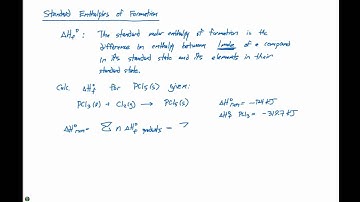 Standard Enthalpies of Formation
ΔHf° : The standard molar enthalpy of formation is the
difference in enthalpy between 1 mole of a compound
in its standard state and its elements in their
standard state.
Calc ΔHf° for PCl5(s) given:
PCl3(l) + Cl2(g) → PCl5(s) ΔH°rxn = -124 kJ
ΔHf° PCl3 = -319.7 kJ
ΔH°rxn = Σ n ΔHf° products - Σ